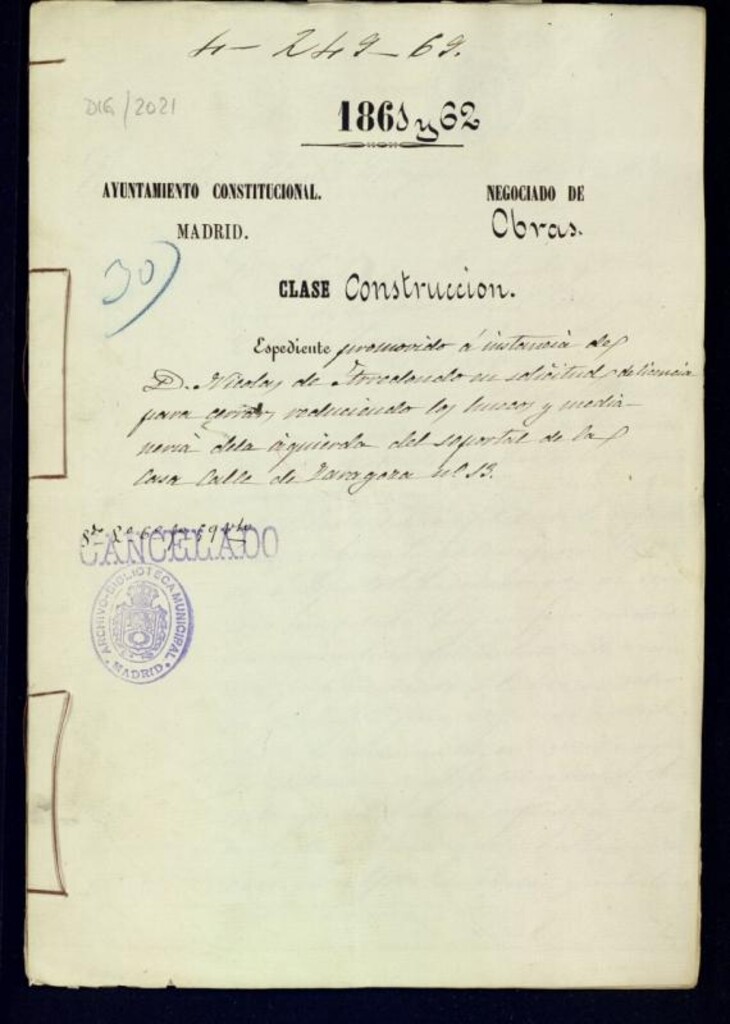 4-249-69.
DIG/2021
1861 y 62
AYUNTAMIENTO CONSTITUCIONAL. NEGOCIADO DE
MADRID. Obras.
30)
CLASE Construccion.
Espediente promovido á instancia de
D. Nicolas de en solicitud de licencia
para cerrar, reduciendo los huecos y media-
neria dela izquierda del soportal de la
Casa Calle de Zaragoza nº 13.
CANCELADO
ARCHIVO-BIBLIOTECA MUNICIPAL
MADRID